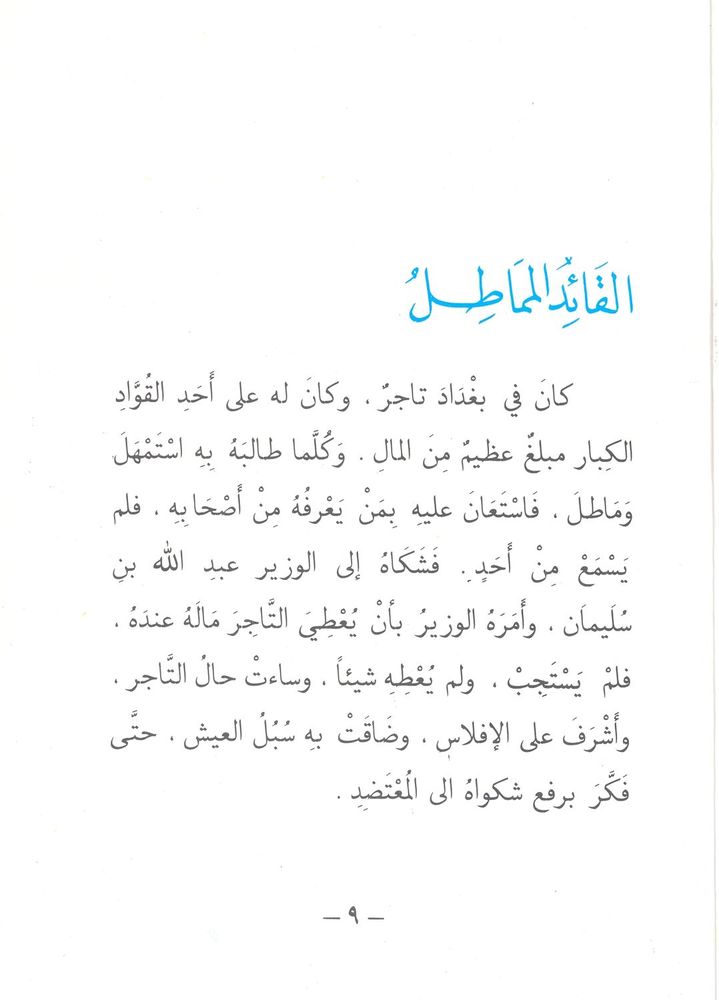 القَائِدُ المُمَاطِلُ
كانَ في بغْدَادَ تاجرٌ ، وكانَ له على أَحَدِ القُوَّادِ
الكِبار مبلغٌ عظيمٌ مِنَ المالِ . وَكُلَّما طالبَهُ بِهِ اسْتَمْهَلَ
وَمَاطلَ ، فَاسْتَعَانَ عليهِ بِمَنْ يَعْرِفُهُ مِنْ أَصْحَابِهِ ، فلم
يَسْمَعْ مِنْ أَحَدٍ . فَشَكَاهُ إلى الوزير عبدِ الله بنِ
سُلَيمَان ، وأَمَرَهُ الوزيرُ بأنْ يُعْطِيَ التَّاجِرَ مَالَهُ عندَهُ ،
فلمْ يَسْتَجِبْ ، ولم يُعْطِهِ شيئاً ، وساءتْ حالُ التَّاجر ،
وأَشْرَفَ على الإفلاسِ ، وضَاقَتْ بهِ سُبُلُ العيش ، حتَّى
فَكَّرَ برفع شكواهُ الى المُعْتَضدِ .
– ٩ –